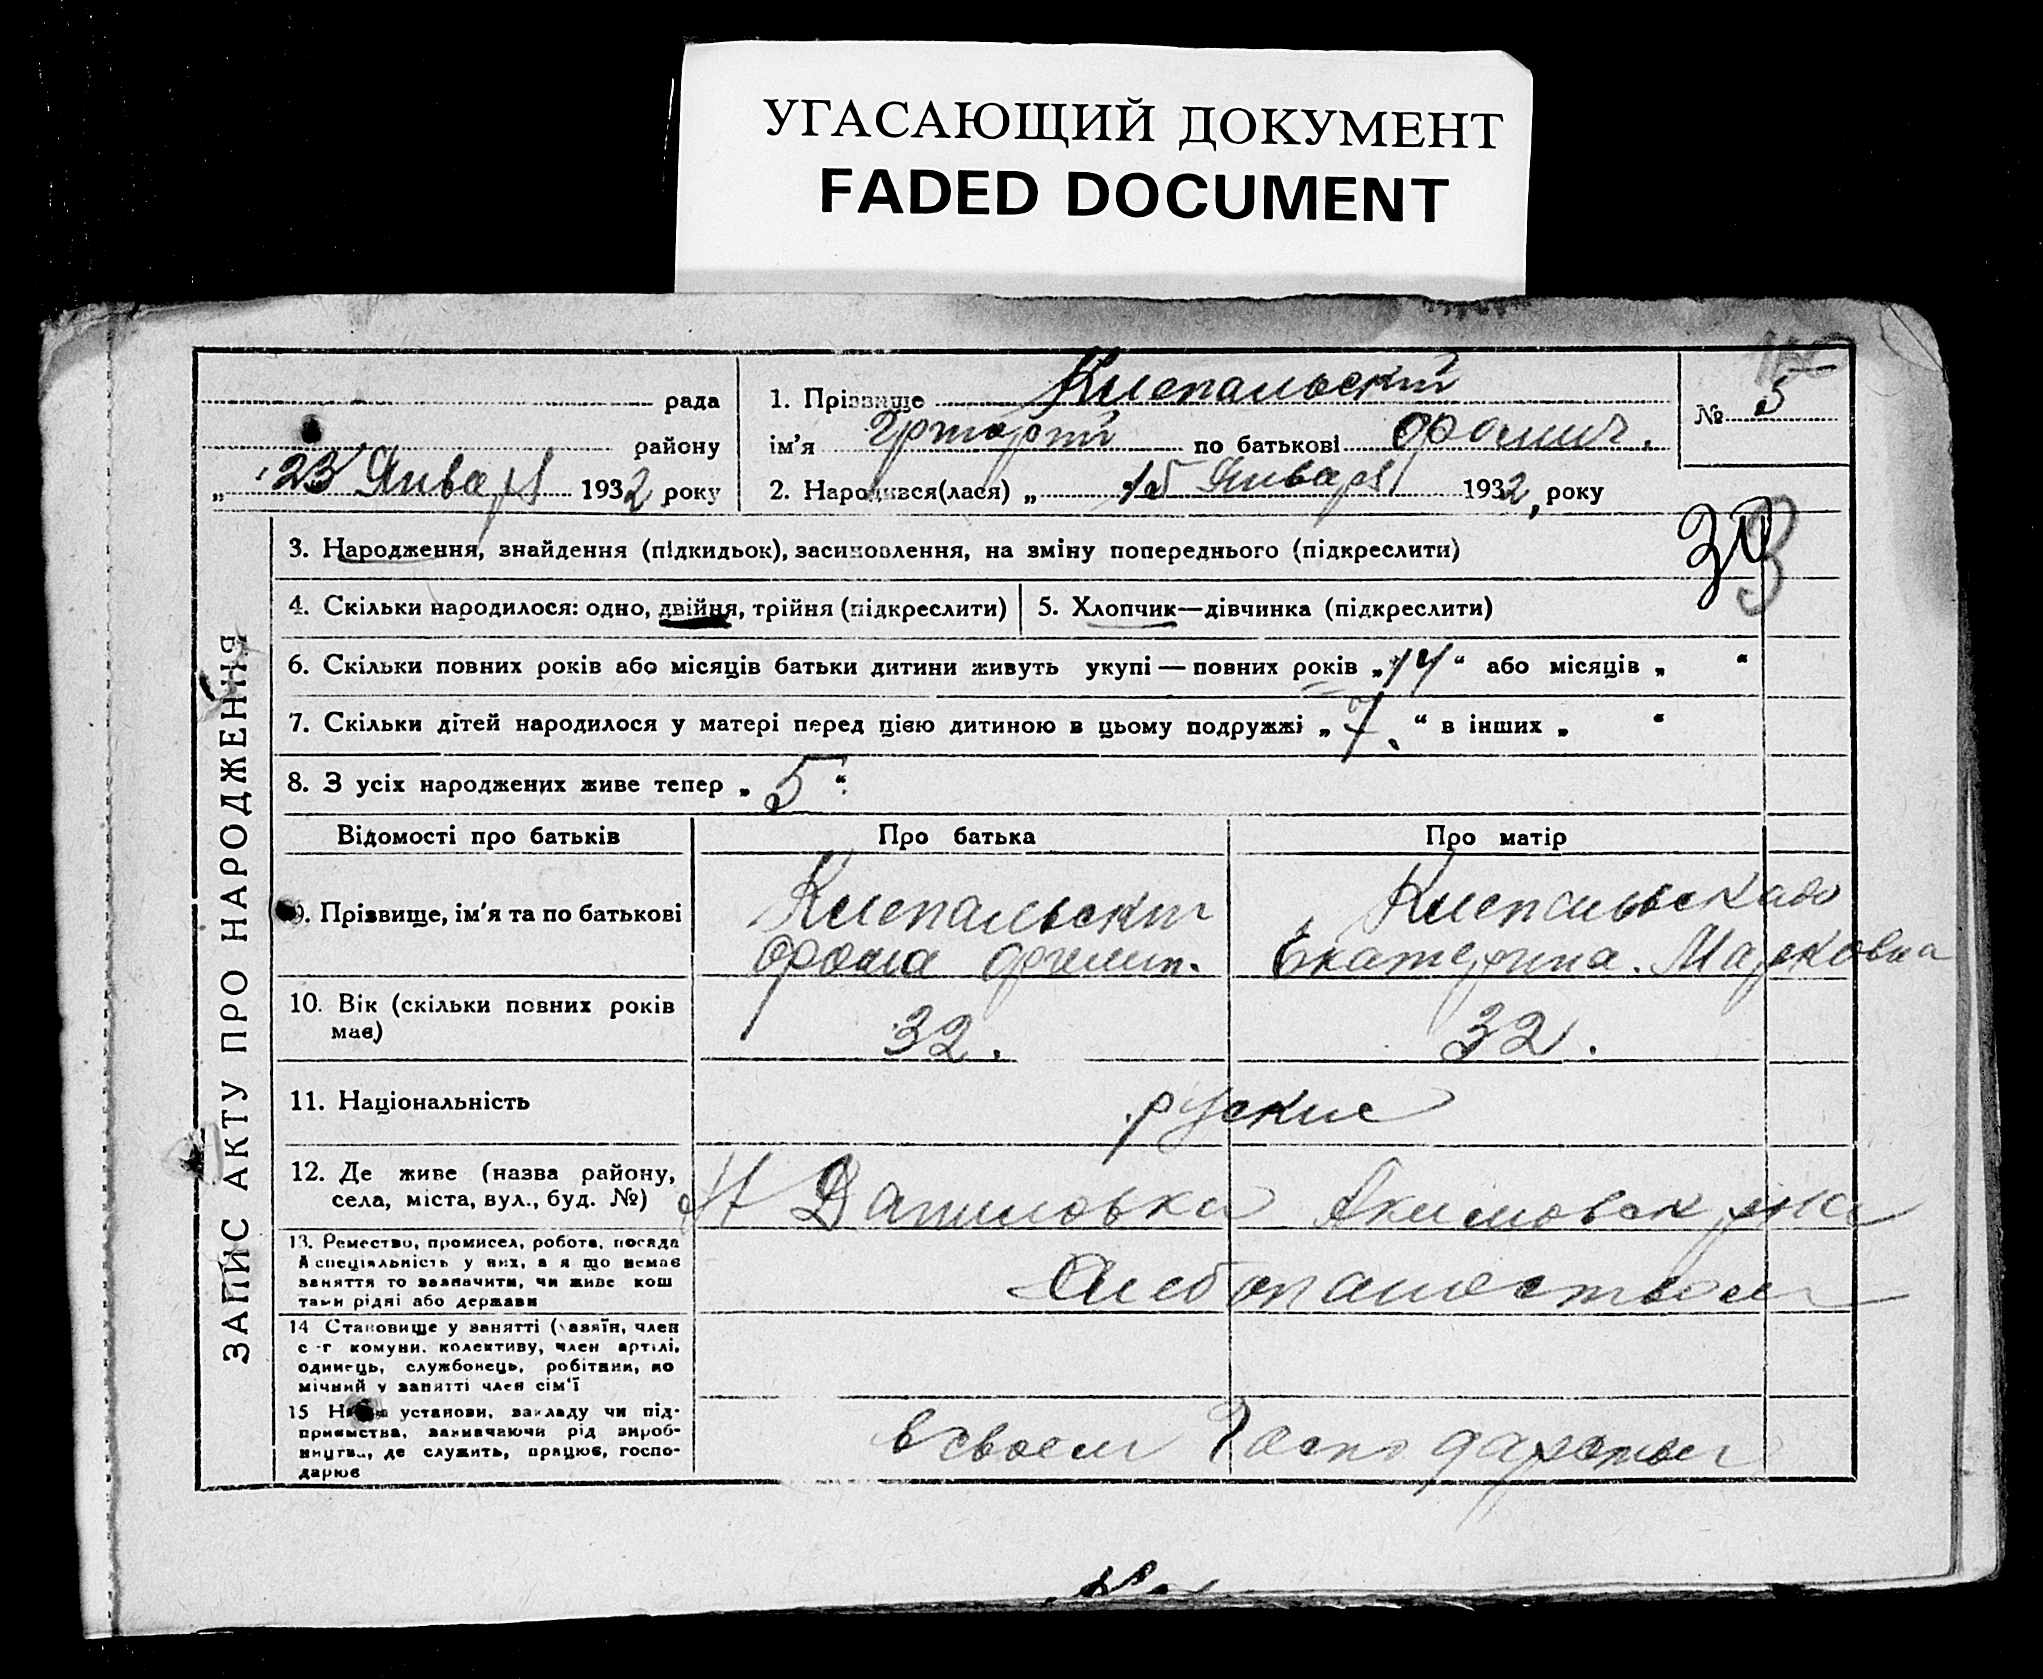 УГАСАЮЩИЙ ДОКУМЕНТ
FADED DOCUMENT
рада
району
„ 23 Января 1932 року
1. Прізвище
№ 5
ім'я по батькові
2. Народився(лася) „ 15 Января 1932, року
ЗАПИС АКТУ ПРО НАРОДЖЕННЯ
3. Народження, знайдення (підкидьок), засиновлення, на зміну попереднього (підкреслити)
4. Скільки народилося: одно, двійня, трійня (підкреслити)
5. Хлопчик—дівчинка (підкреслити)
6. Скільки повних років або місяців батьки дитини живуть укупі — повних років „14“ або місяців „ “
7. Скільки дітей народилося у матері перед цією дитиною в цьому подружжі „7.“ в інших „ “
8. З усіх народжених живе тепер „5“
Відомості про батьків Про батька Про матір
9. Прізвище, ім'я та по батькові
Екатерина. Марковна
10. Вік (скільки повних років
має)
32. 32.
11. Національність
руские
12. Де живе (назва району,
села, міста, вул., буд. №)
Даниловка Акимовск р-на
13. Ремество, промисел, робота, посада
й спеціяльність у них, а я що немає
заняття то зазначити, чи живе кош
тами рідні або держави
14 Становище у занятті (хазяїн, член
с-г комуни, колективу, член артілі,
одинець, службонець, робітник, по
мічний у занятті член сім'ї
15 Назва установи, закладу чи під-
приємства, зазначаючи рід вироб-
ництва, де служить, працює, госпо-
дарює
в своем